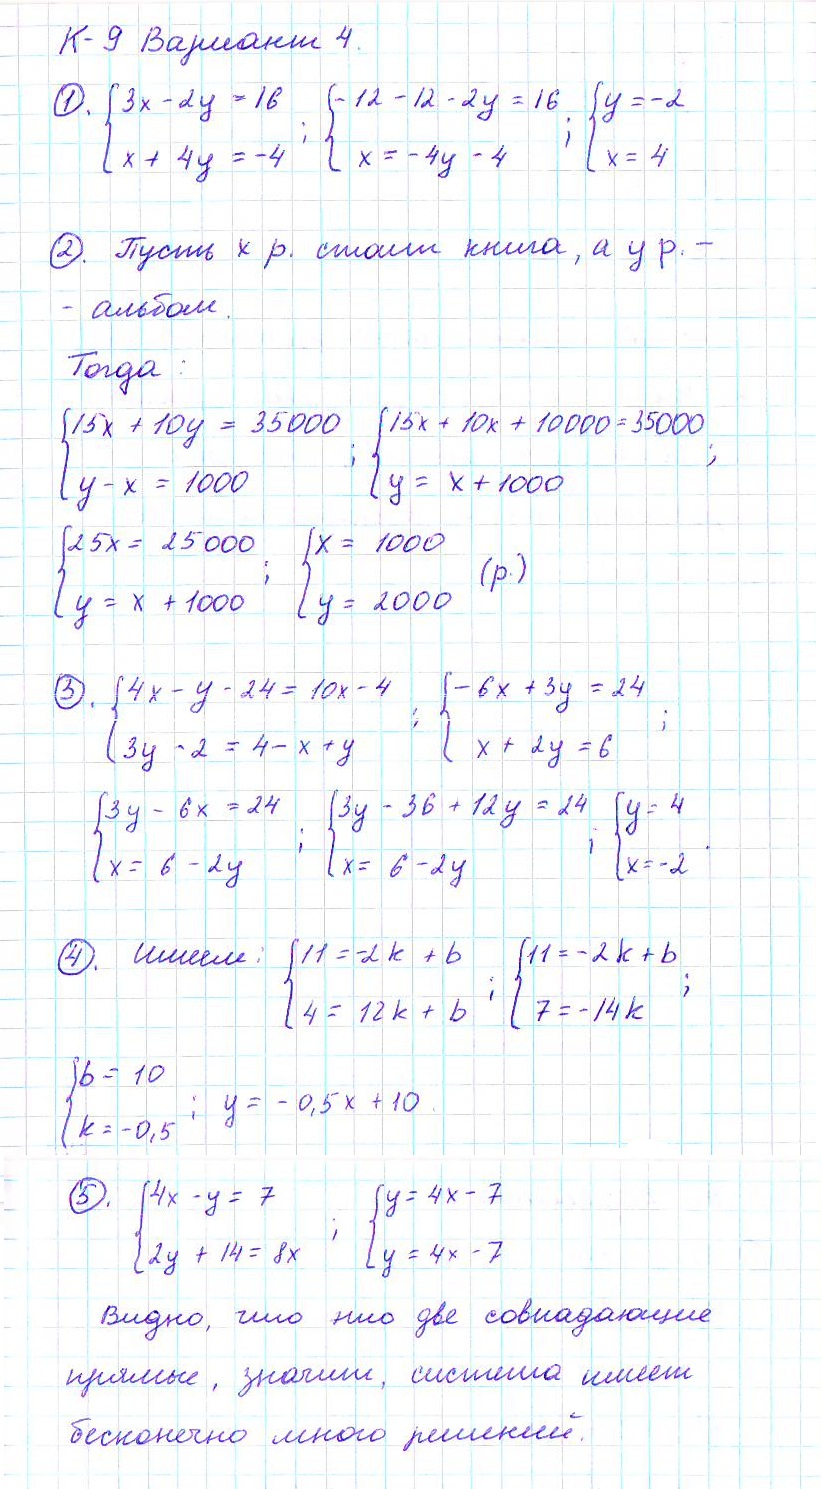 К-9 Вариант 4.
①. {3x - 2y = 16 ; {-12 - 12 - 2y = 16 ; {y = -2
{x + 4y = -4 {x = -4y - 4 {x = 4
②. Пусть x р. стоит книга, а y р. -
- альбом.
Тогда:
{15x + 10y = 35000 ; {15x + 10x + 10000 = 35000 ;
{y - x = 1000 {y = x + 1000
{25x = 25000 ; {x = 1000 (р.)
{y = x + 1000 {y = 2000
③. {4x - y - 24 = 10x - 4 ; {-6x + 3y = 24 ;
{3y - 2 = 4 - x + y {x + 2y = 6
{3y - 6x = 24 ; {3y - 36 + 12y = 24 ; {y = 4
{x = 6 - 2y {x = 6 - 2y {x = -2 .
④. Имеем: {11 = -2k + b ; {11 = -2k + b ;
{4 = 12k + b {7 = -14k
{b = 10 ; y = -0,5x + 10.
{k = -0,5
⑤. {4x - y = 7 ; {y = 4x - 7
{2y + 14 = 8x {y = 4x - 7
Видно, что это две совпадающие
прямые, значит, система имеет
бесконечно много решений.